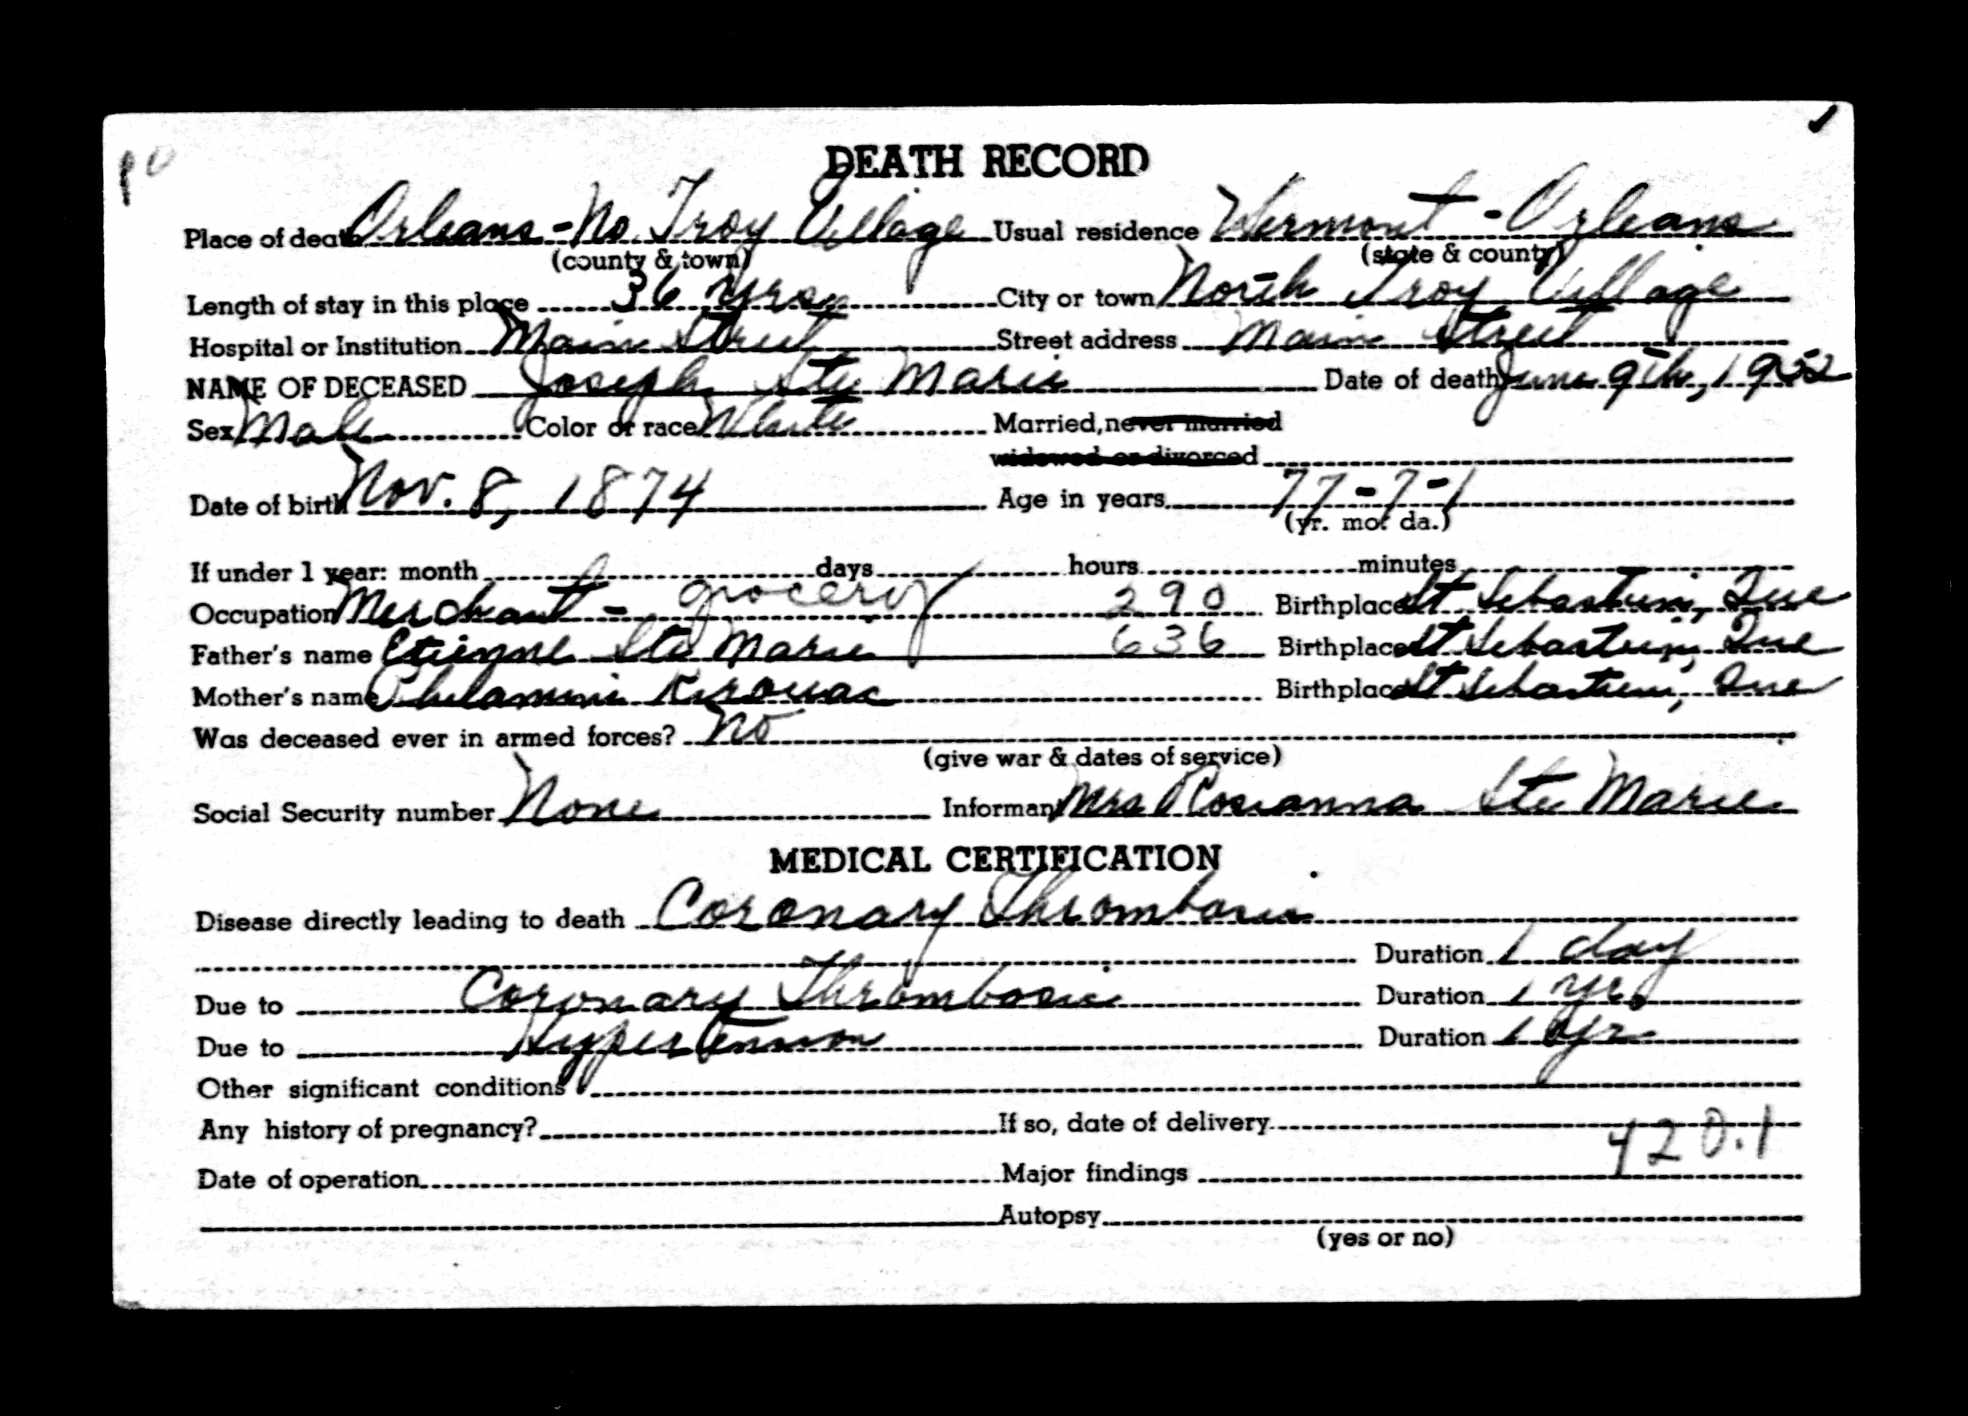 DEATH RECORD
Place of death Orleans - No Troy Village Usual residence Vermont - Orleans
(county & town) (state & county)
Length of stay in this place 36 yrs. City or town North Troy Village
Hospital or Institution Main Street Street address Main Street
NAME OF DECEASED Joseph Ste Marie Date of death June 9th, 1952
Sex Male Color or race White Married, never married
widowed or divorced
Date of birth Nov. 8, 1874 Age in years 77-7-1
(yr. mo. da.)
If under 1 year: month days hours minutes
Occupation Merchant - grocery 290 Birthplace St Sebastien, Que
Father's name Etienne Ste Marie 636 Birthplace St Sebastien, Que
Mother's name Philamini Kirouac Birthplace St Sebastien, Que
Was deceased ever in armed forces? No
(give war & dates of service)
Social Security number None Informant Mrs Roseanna Ste Marie
MEDICAL CERTIFICATION
Disease directly leading to death Coronary Thrombosis
Duration 1 day
Due to Coronary Thrombosis Duration 1 yr.
Due to Hypertension Duration 1 yr.
Other significant conditions
Any history of pregnancy? If so, date of delivery
420.1
Date of operation Major findings
Autopsy
(yes or no)